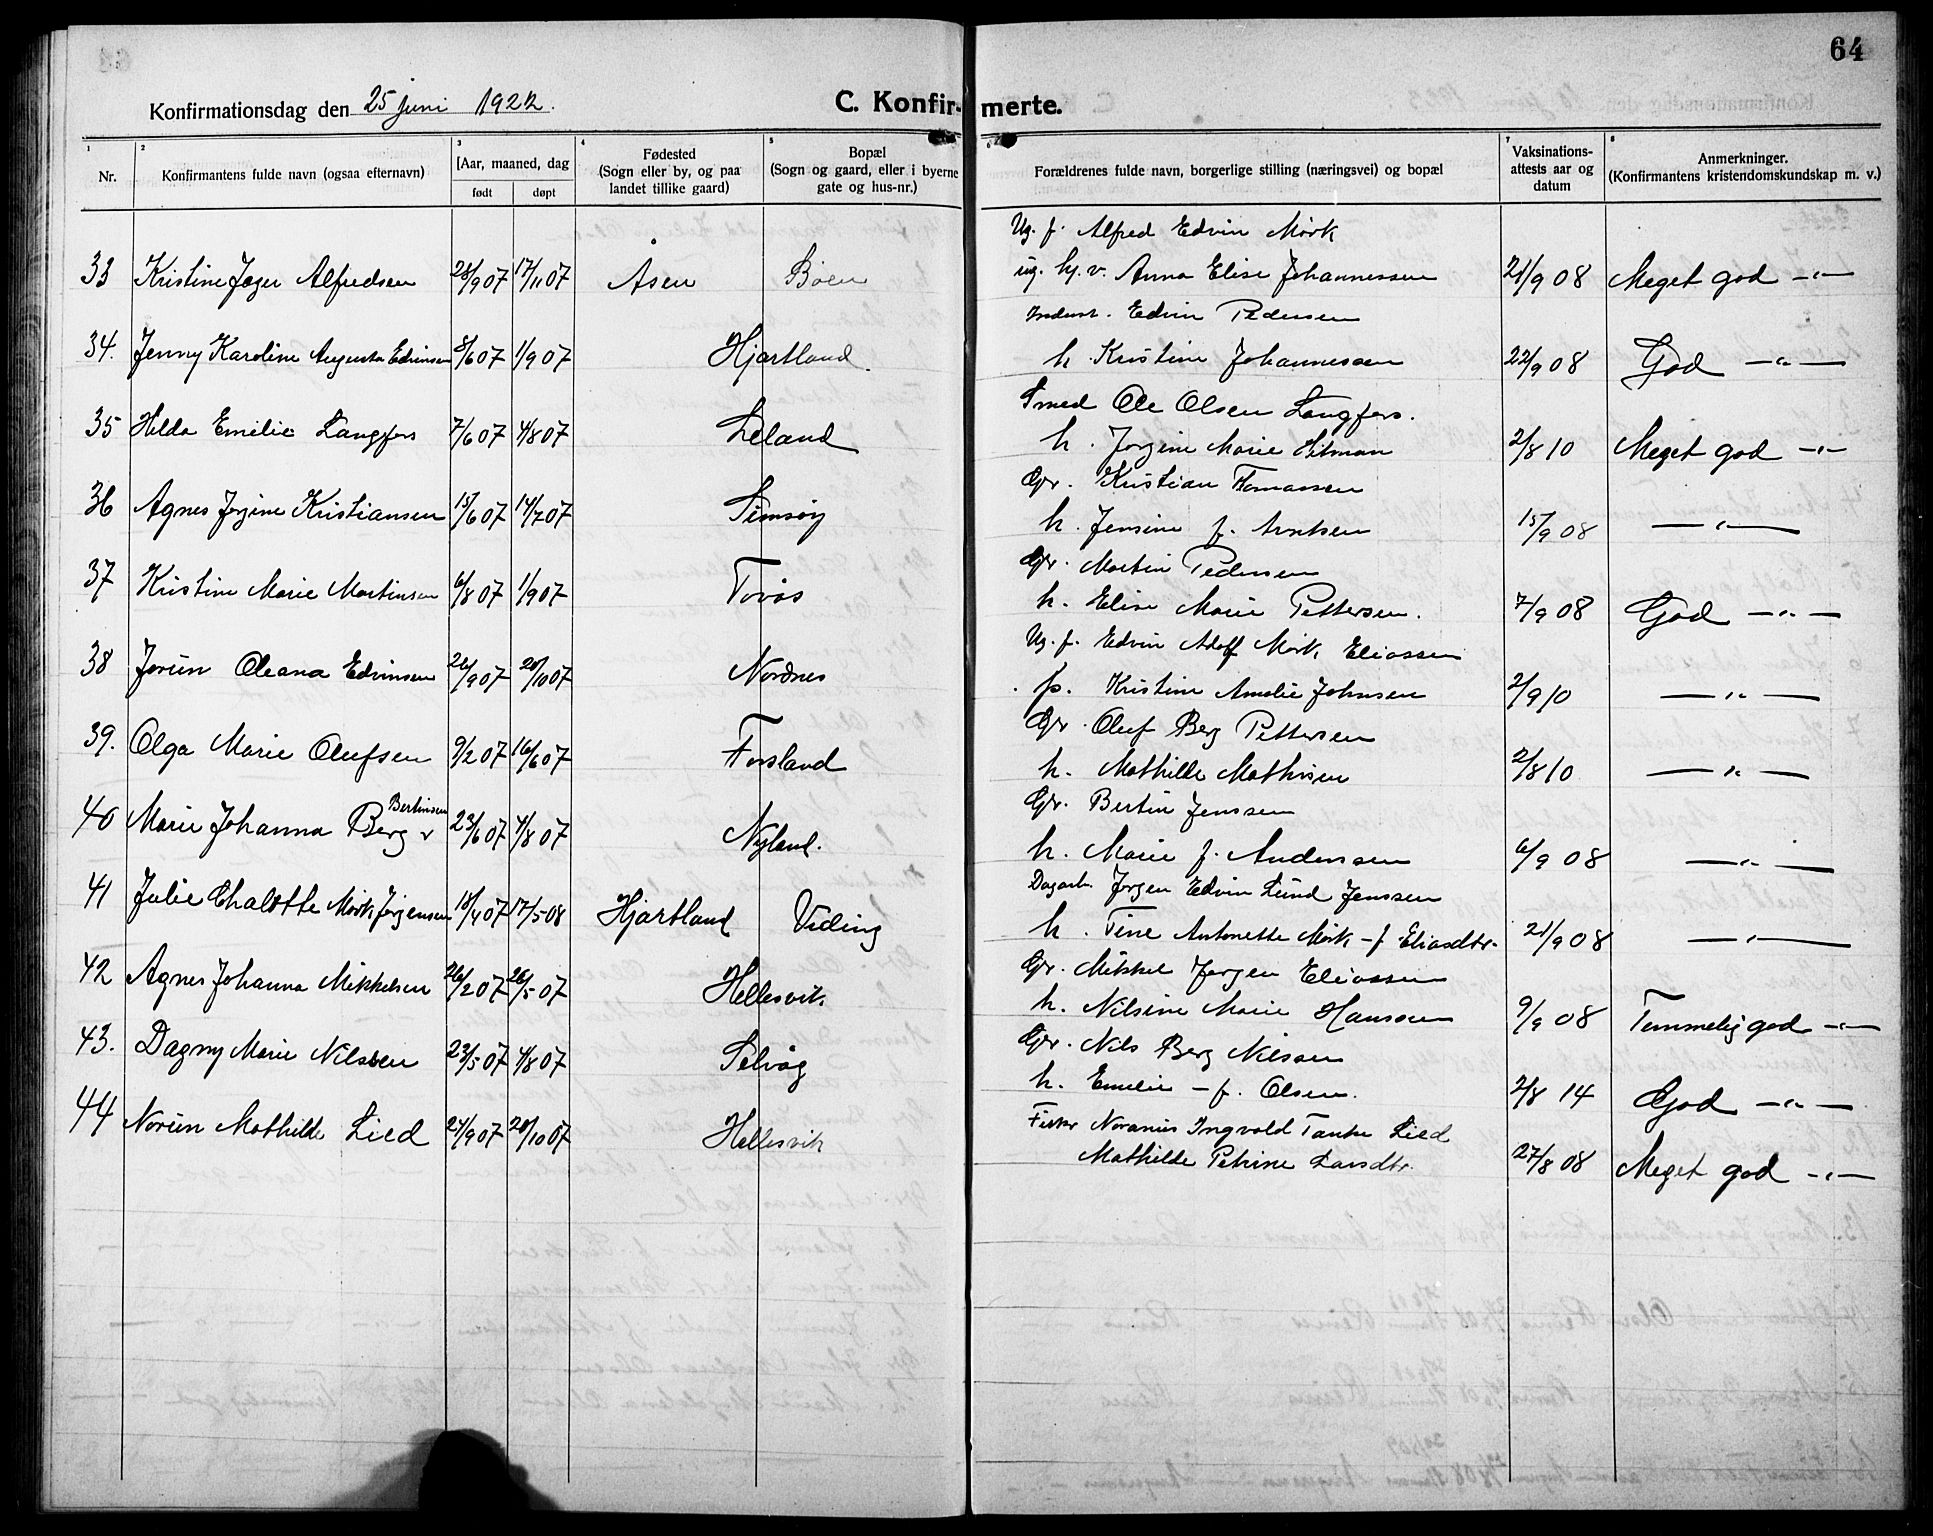 64
Konfirmationsdag den 25 juni 1922.
C. Konfirmerte.
1 2 3 4 5 7 8
Nr.
Konfirmantens fulde navn (ogsaa efternavn)
[Aar, maaned, dag
født døpt
Fødested
(Sogn eller by, og paa
landet tillike gaard)
Bopæl
(Sogn og gaard, eller i byerne
gate og hus-nr.)
Forældrenes fulde navn, borgerlige stilling (næringsvei) og bopæl
Vaksinations-
attests aar og
datum
Anmerkninger.
(Konfirmantens kristendomskundskap m. v.)
Ug. f. Alfred Edvin Mørk
33 Kristine Jæger Alfredsen 28/9 07 17/11 07 Åsen Bøen ug. hj. v. Anna Elise Johannessen 21/9 08 Meget god -"-
Edvin Pedersen
34. Jenny Karoline Augusta Edvinsen 8/6 07 1/9 07 Hjartland. h. Kristine Johannesen 22/9 08 God -"-
Smed Ole Olsen Langfors.
35 Hilda Emilie Langfors 7/6 07 4/8 07 Leland h. Jørgine Marie Hitman 2/8 10 Meget god -"-
Gr. Kristian Tomassen
36 Agnes Jørgine Kristiansen 15/6 07 14/7 07 h. Jensine f. Arntsen 15/9 08 -"-
Gr. Martin Pedersen
37 Kristine Marie Martinsen 6/8 07 1/9 07 h. Elise Marie Pettersen. 7/9 08 God -"-
Ug. f. Edvin Adolf Mørk Eliassen
38 Jorun Oleana Edvinsen 26/9 07 20/10 07 Nordnes p. Kristine Amalie Johnsen 2/9 10 -"-
Gr. Oluf Berg Pettersen
39. Olga Marie Olufsen 9/2 07 16/6 07 Forsland h. Mathilde Mathisen 2/8 10 -"-
Gr. Bertin Jenssen
Bertinsen
40 Marie Johanna Berg v 23/6 07 4/8 07 Nyland. h. Marie f. Andersen 6/9 08 -"-
Dagarb. Jørgen Edvin Lund Jenssen
41 Julie Chalotte Mørk Jørgensen 18/4 07 17/5 08 Hjartland Viding h. Tine Antonette Mørk - f. Eliasdtr. 21/9 08 -"-
Gr. Mikkel Jørgen Eliassen
42 Agnes Johanna Mikkelsen 26/2 07 26/5 07 Hellesvik h. Nilsine Marie Hanssen 9/9 08 Temmelig god -"-
Gr. Nils Berg Nilssen
43. Dagny Marie Nilssen 23/5 07 4/8 07 Selvåg h. Emelie - f. Olsen. 2/8 14 God -"-
Fisker Noranius Ingvald Tanke Lied
44 Norun Mathilde Lied 27/9 07 20/10 07 Hellesvik Mathilde Petrine Larsdtr. 27/8 08 Meget god -"-